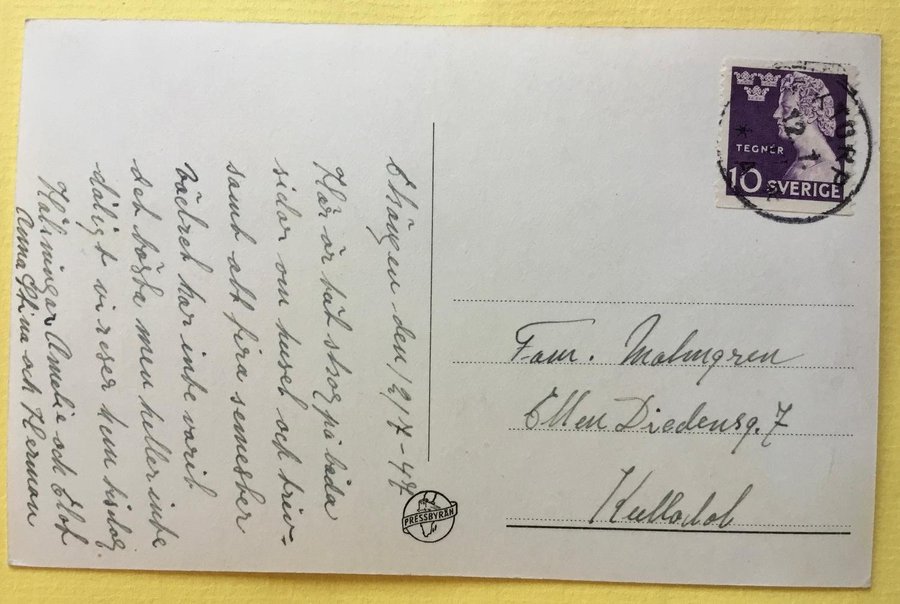 den 12/7-47
Här är tät skog på båda
sidor om huset och triv-
samt att fira semester
vädret har inte varit
det bästa men heller inte
dåligt vi reser hem tisdag
Hälsningar Amelie och Elof
Anna Stina och Herman
TEGNÉR
10 SVERIGE
12.7.
Fam. Malmgren
Ellen Diedensg. 7
PRESSBYRÅN